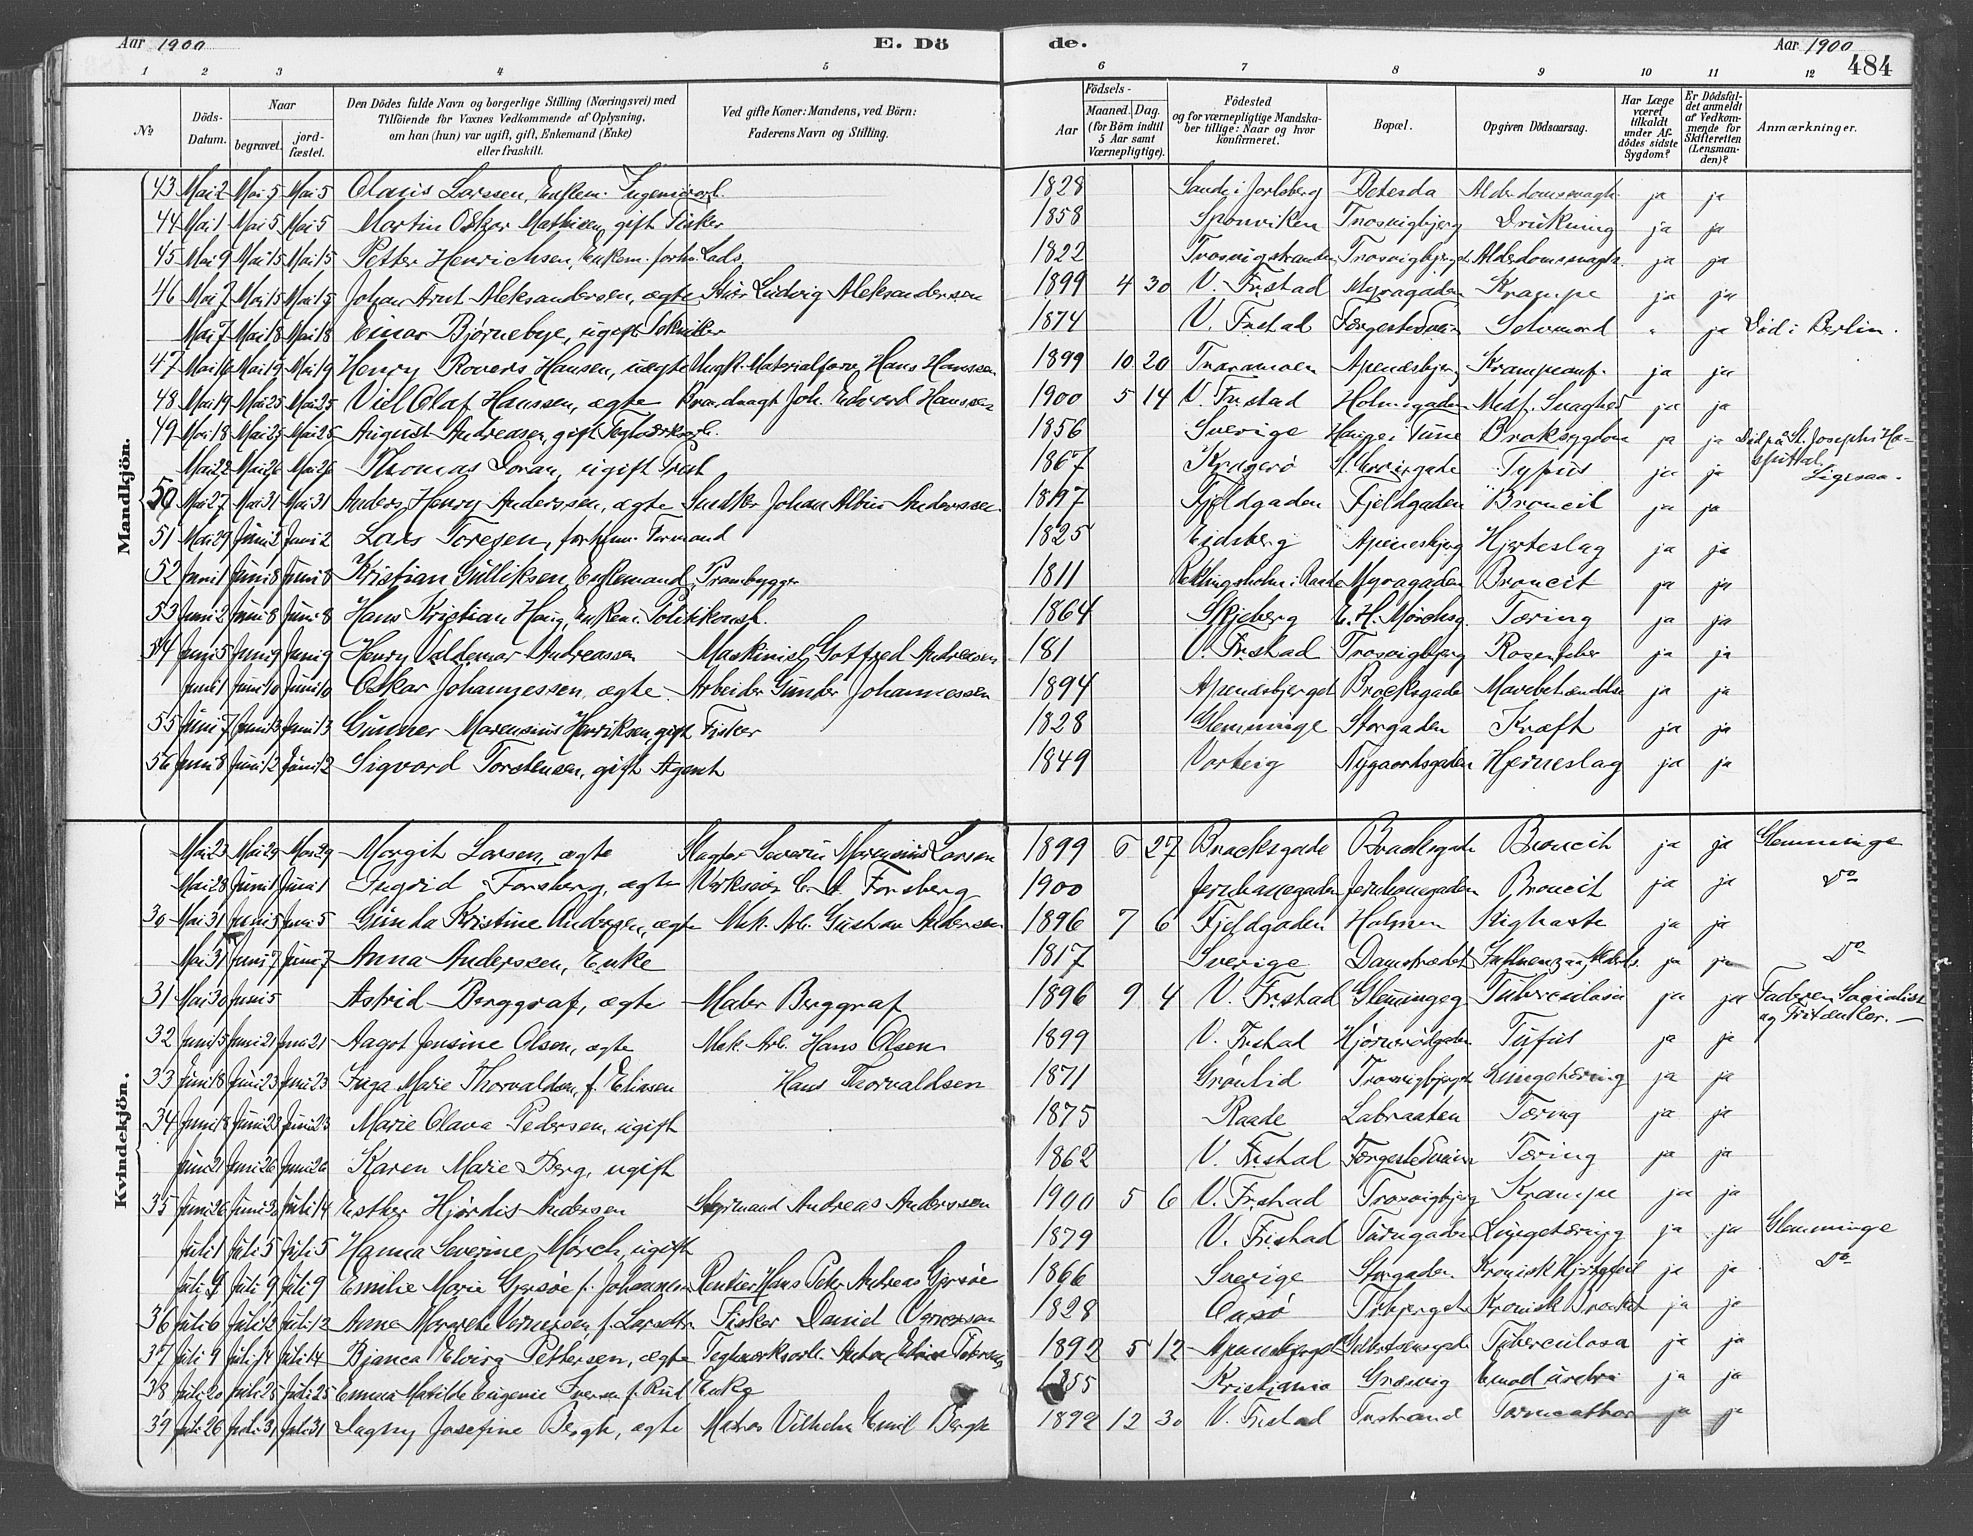 Aar 1900 E. Dö de. Aar 1900
484
1 2 3 4 5 6 7 8 9 10 11 12
№ Döds-Datum. Naar begravet. jord-fæstet. Den Dödes fulde Navn og borgerlige Stilling (Næringsvei) med Tilföiende for Voxnes Vedkommende af Oplysning, om han (hun) var ugift, gift, Enkemand (Enke) eller fraskilt. Ved gifte Koner: Mandens, ved Börn: Faderens Navn og Stilling. Födsels- Aar Maaned. Dag. (for Börn indtil 5 Aar samt Værnepligtige). Födested og for værnepligtige Mandska-ber tillige: Naar og hvor konfirmeret. Bopæl. Opgiven Dödsaarsag. Har Læge været tilkaldt under Af-dödes sidste Sygdom? Er Dödsfal-det anmeldt af Vedkom-mende for Skifteretten (Lensman-den)? Anmærkninger.
Mandkjön.
43 Mai 2 Mai 5 Mai 5 Olaus Larssen, Enkem. 1828 Sande i Jarlsberg Betesda ja ja
44 Mai 1 Mai 5 Mai 5 Martin Oskar Mathisen, gift Fisker 1858 Sponviken Trosvigbjerg Drukning ja ja
45 Mai 9 Mai 15 Mai 15 Petter Henrichsen, Enkem. forhv. Lods. 1822 Trosvigstranden Trosvigbjerget Alderdomssvagh. ja ja
46 Mai 7 Mai 15 Mai 15 Johan Arnt Aleksandersen, ægte Ludvig Aleksandersen 1899 4 30 V. Frstad Myragaden Krampe ja ja
Mai 7 Mai 18 Mai 18 Einar Bjørnebye, ugift Tekniker 1874 V. Frstad Selvmord " ja Död i Berlin.
47 Mai 16 Mai 19 Mai 19 Henry Hansen, uægte Ungk. Materialforv. Hans Hanssen 1899 10 20 Apenesbjerg Krampeanf. ja ja
48 Mai 19 Mai 25 Mai 25 Olaf Hanssen, ægte Joh. Edvard Hanssen 1900 5 14 V. Frstad Holmegaden Medf. Svaghed ja ja
49 Mai 18 Mai 25 Mai 25 August Andreasen, gift Teglværksarb. 1856 Sverige Hauge i Tune ja ja Död på St. Josephs Ho-
spital
Mai 22 Mai 26 Mai 26 Thomas Doran, ugift Prest 1867 Kragerø Tyfus ja ja Ligesaa.
50 Mai 27 Mai 31 Mai 31 Anders Henry Anderssen, ægte Snedker Johan Albin Anderssen. 1897 Fjeldgaden Fjeldgaden Broncit ja ja
51 Mai 29 Juni 2 Juni 2 Lars Toresen, Formand 1825 Eidsberg Apenesbjerg Hjerteslag ja ja
52 Juni 1 Juni 8 Juni 8 Kristian Gulliksen, Enkemand, Prambygger 1811 Myragaden Broncit ja ja
53 Juni 2 Juni 8 Juni 8 Hans Kristian Haug, Enkem. Politikonst. 1864 Skjeberg E. H. Mørchsg. Tæring ja ja
54 Juni 5 Juni 9 Juni 9 Henry Valdemar Andreassen Maskinist Gotfred Andreasen 181 V. Frstad Trosvigbjerg Rosenfeber ja ja
Juni 1 Juni 10 Juni 10 Oskar Johannessen, ægte Arbeider Gunder Johannessen 1894 Apenesbjerget Brocksgade ja ja
55 Juni 7 Juni 13 Juni 13 Gunner Marensius Henriksen, gift Fisker 1828 Glemminge Storgaden Kræft ja ja
56 Juni 8 Juni 12 Juni 12 Sigvard Torstensen, gift Agent 1849 Varteig Nygaardsgaden Hjerneslag ja ja
Kvindekjön.
Mai 23 Mai 29 Mai 29 Margit Larsen, ægte Slagter Severin Marensius Larsen 1899 6 27 Brocksgade Brocksgade Broncit ja ja Glemminge
Mai 28 Juni 1 Juni 1 Ingrid Forsberg, ægte Forsberg 1900 Jernbanegaden Jernbanegaden Broncit ja ja Do
30 Mai 31 Juni 5 Juni 5 Gunda Kristine Andersen, ægte Mek. Arb. Gustav Andersen 1896 7 6 Fjeldgaden Holmen Kighoste ja ja
Mai 31 Juni 7 Juni 7 Anna Anderssen, Enke 1817 Sverige Damstrædet Influenza ja ja Do
31 Mai 30 Juni 5 Astrid Berggraf, ægte Maler Berggraf 1896 9 4 V. Frstad Glemingeg Tuberculosa ja ja Faderen Socialist
og Fritænker.
32 Juni 15 Juni 21 Juni 21 Aagot Jensine Olsen, ægte Mek. Arb. Hans Olsen 1899 V. Frstad Tyfus ja ja
33 Juni 18 Juni 23 Juni 23 Inga Marie Thorvaldsen, f. Eliasen Hans Thorvaldsen 1871 Grönlid Trosvigbjerget Lungetæring ja ja
34 Juni 18 Juni 23 Juni 23 Marie Olava Pedersen, ugift 1875 Raade Labraaten Tæring ja ja
Juni 21 Juni 26 Juni 26 Karen Marie Berg, ugift 1862 V. Frstad Tæring ja ja
35 Juni 26 Juni 30 Juli 14 Esther Hjørdis Andersen Styrmand Andreas Anderssen 1900 5 6 V. Frstad Trosvigbjerg Krampe ja ja
Juli 1 Juli 5 Juli 5 Hanna Severine Mørch, ugift 1879 V. Frstad Farmgaden Lungetæring ja ja Glemminge
Juli 9 Juli 9 Emilie Marie Gjersøe f. Johannsen Rentier Hans Peter Andreas Gjersøe 1866 Sverige Storgaden Kronisk Hjertefeil ja ja Do
36 Juli 6 Juli 12 Juli 12 Anna Margrethe Vernersen f. Larsdtr. Fisker Daniel Vernersen 1828 Onsö Kronisk ja ja
37 Juli 9 Juli 14 Juli 14 Bjanca Elvira Pettersen, ægte Teglværksarb. Anton 1892 5 12 Apenesbjerget Tuberculosa ja ja
38 Juli 20 Juli 25 Juli 25 Emma Matilde Eugenie Iversen f. Rud Enke 1855 Kristiania Græsvig ja ja
39 Juli 26 Juli 31 Juli 31 Dagny Josefine Bergh, ægte Matros Vilhelm Emil Bergh 1892 12 30 V. Frstad ja ja